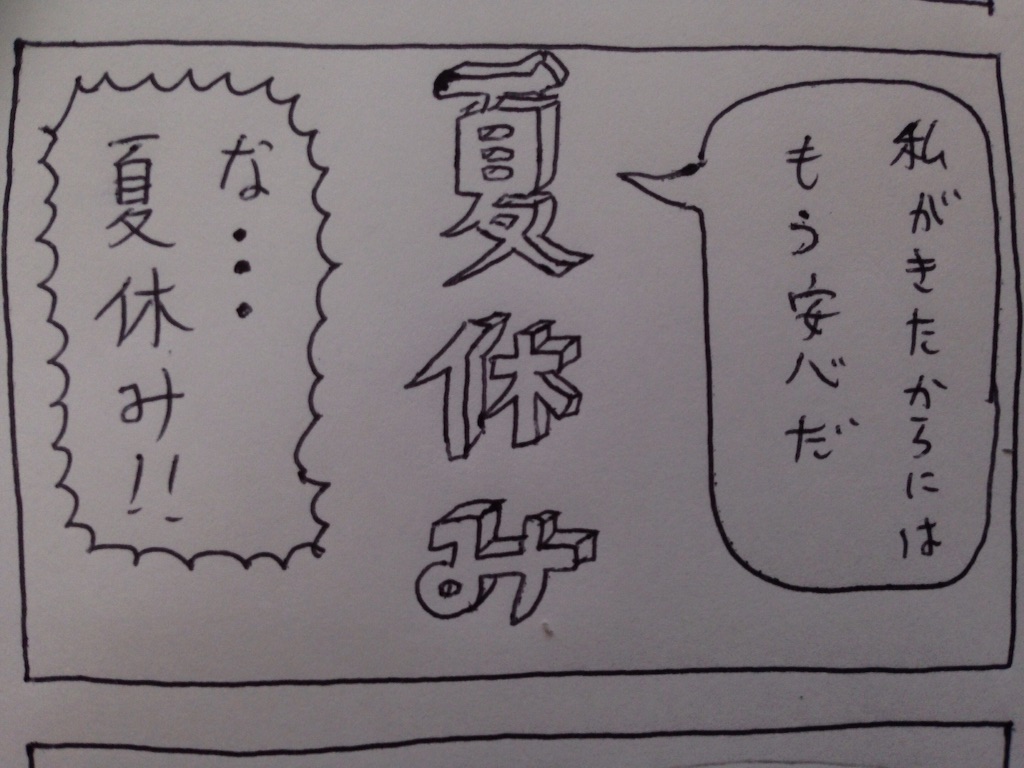 私がきたからには
もう安心だ
夏休み
な・・・
夏休み!!